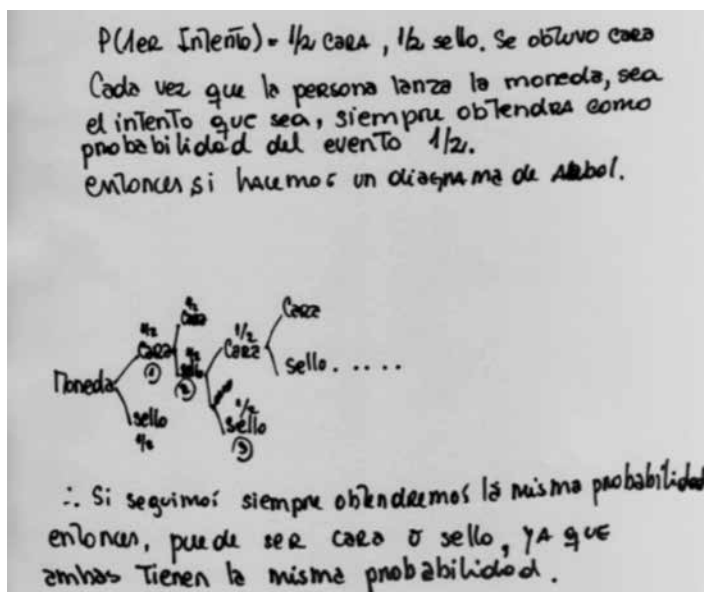 P(1er Intento) = 1/2 cara, 1/2 sello. Se obtuvo cara
Cada vez que la persona lanza la moneda, sea
el intento que sea, siempre obtendra como
probabilidad del evento 1/2.
entonces si hacemos un diagrama de Arbol.
1/2
Cara
Cara
1/2
1/2
1/2
Cara
Cara
①
sello
②
sello.....
Moneda
1/2
sello
sello
1/2
③
∴ Si seguimos siempre obtendremos la misma probabilidad
entonces, puede ser cara o sello, ya que
ambas Tienen la misma probabilidad.